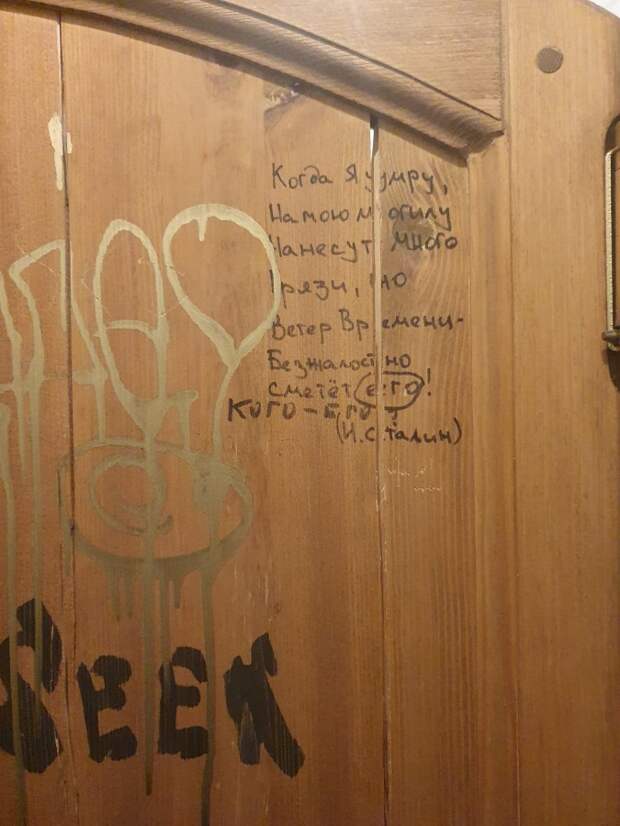 Когда Я умру,
На мою могилу
Нанесут много
грязи, но
Ветер Времени-
Безжалостно
сметёт его!
КОГО-ЕГО?
(И.Сталин)
SBEK